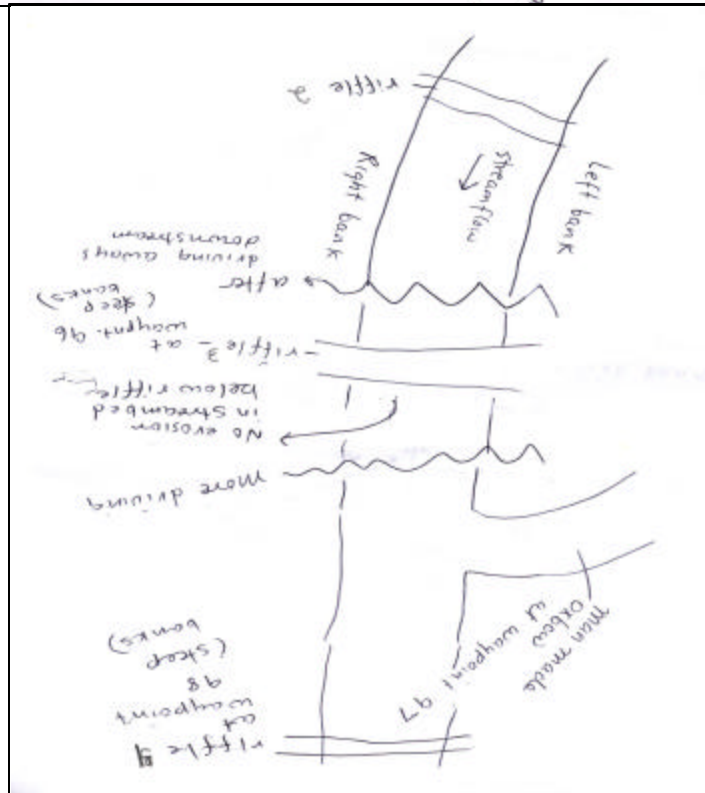 riffle 2
Right bank
streamflow
Left bank
after
driving aways
downstream
riffle 3 - at
waypnt. 96
(steep
banks)
No erosion
in streambed
below riffle
more driving
man made
oxbow
at waypoint 97
riffle
at
waypoint
98
(steep
banks)